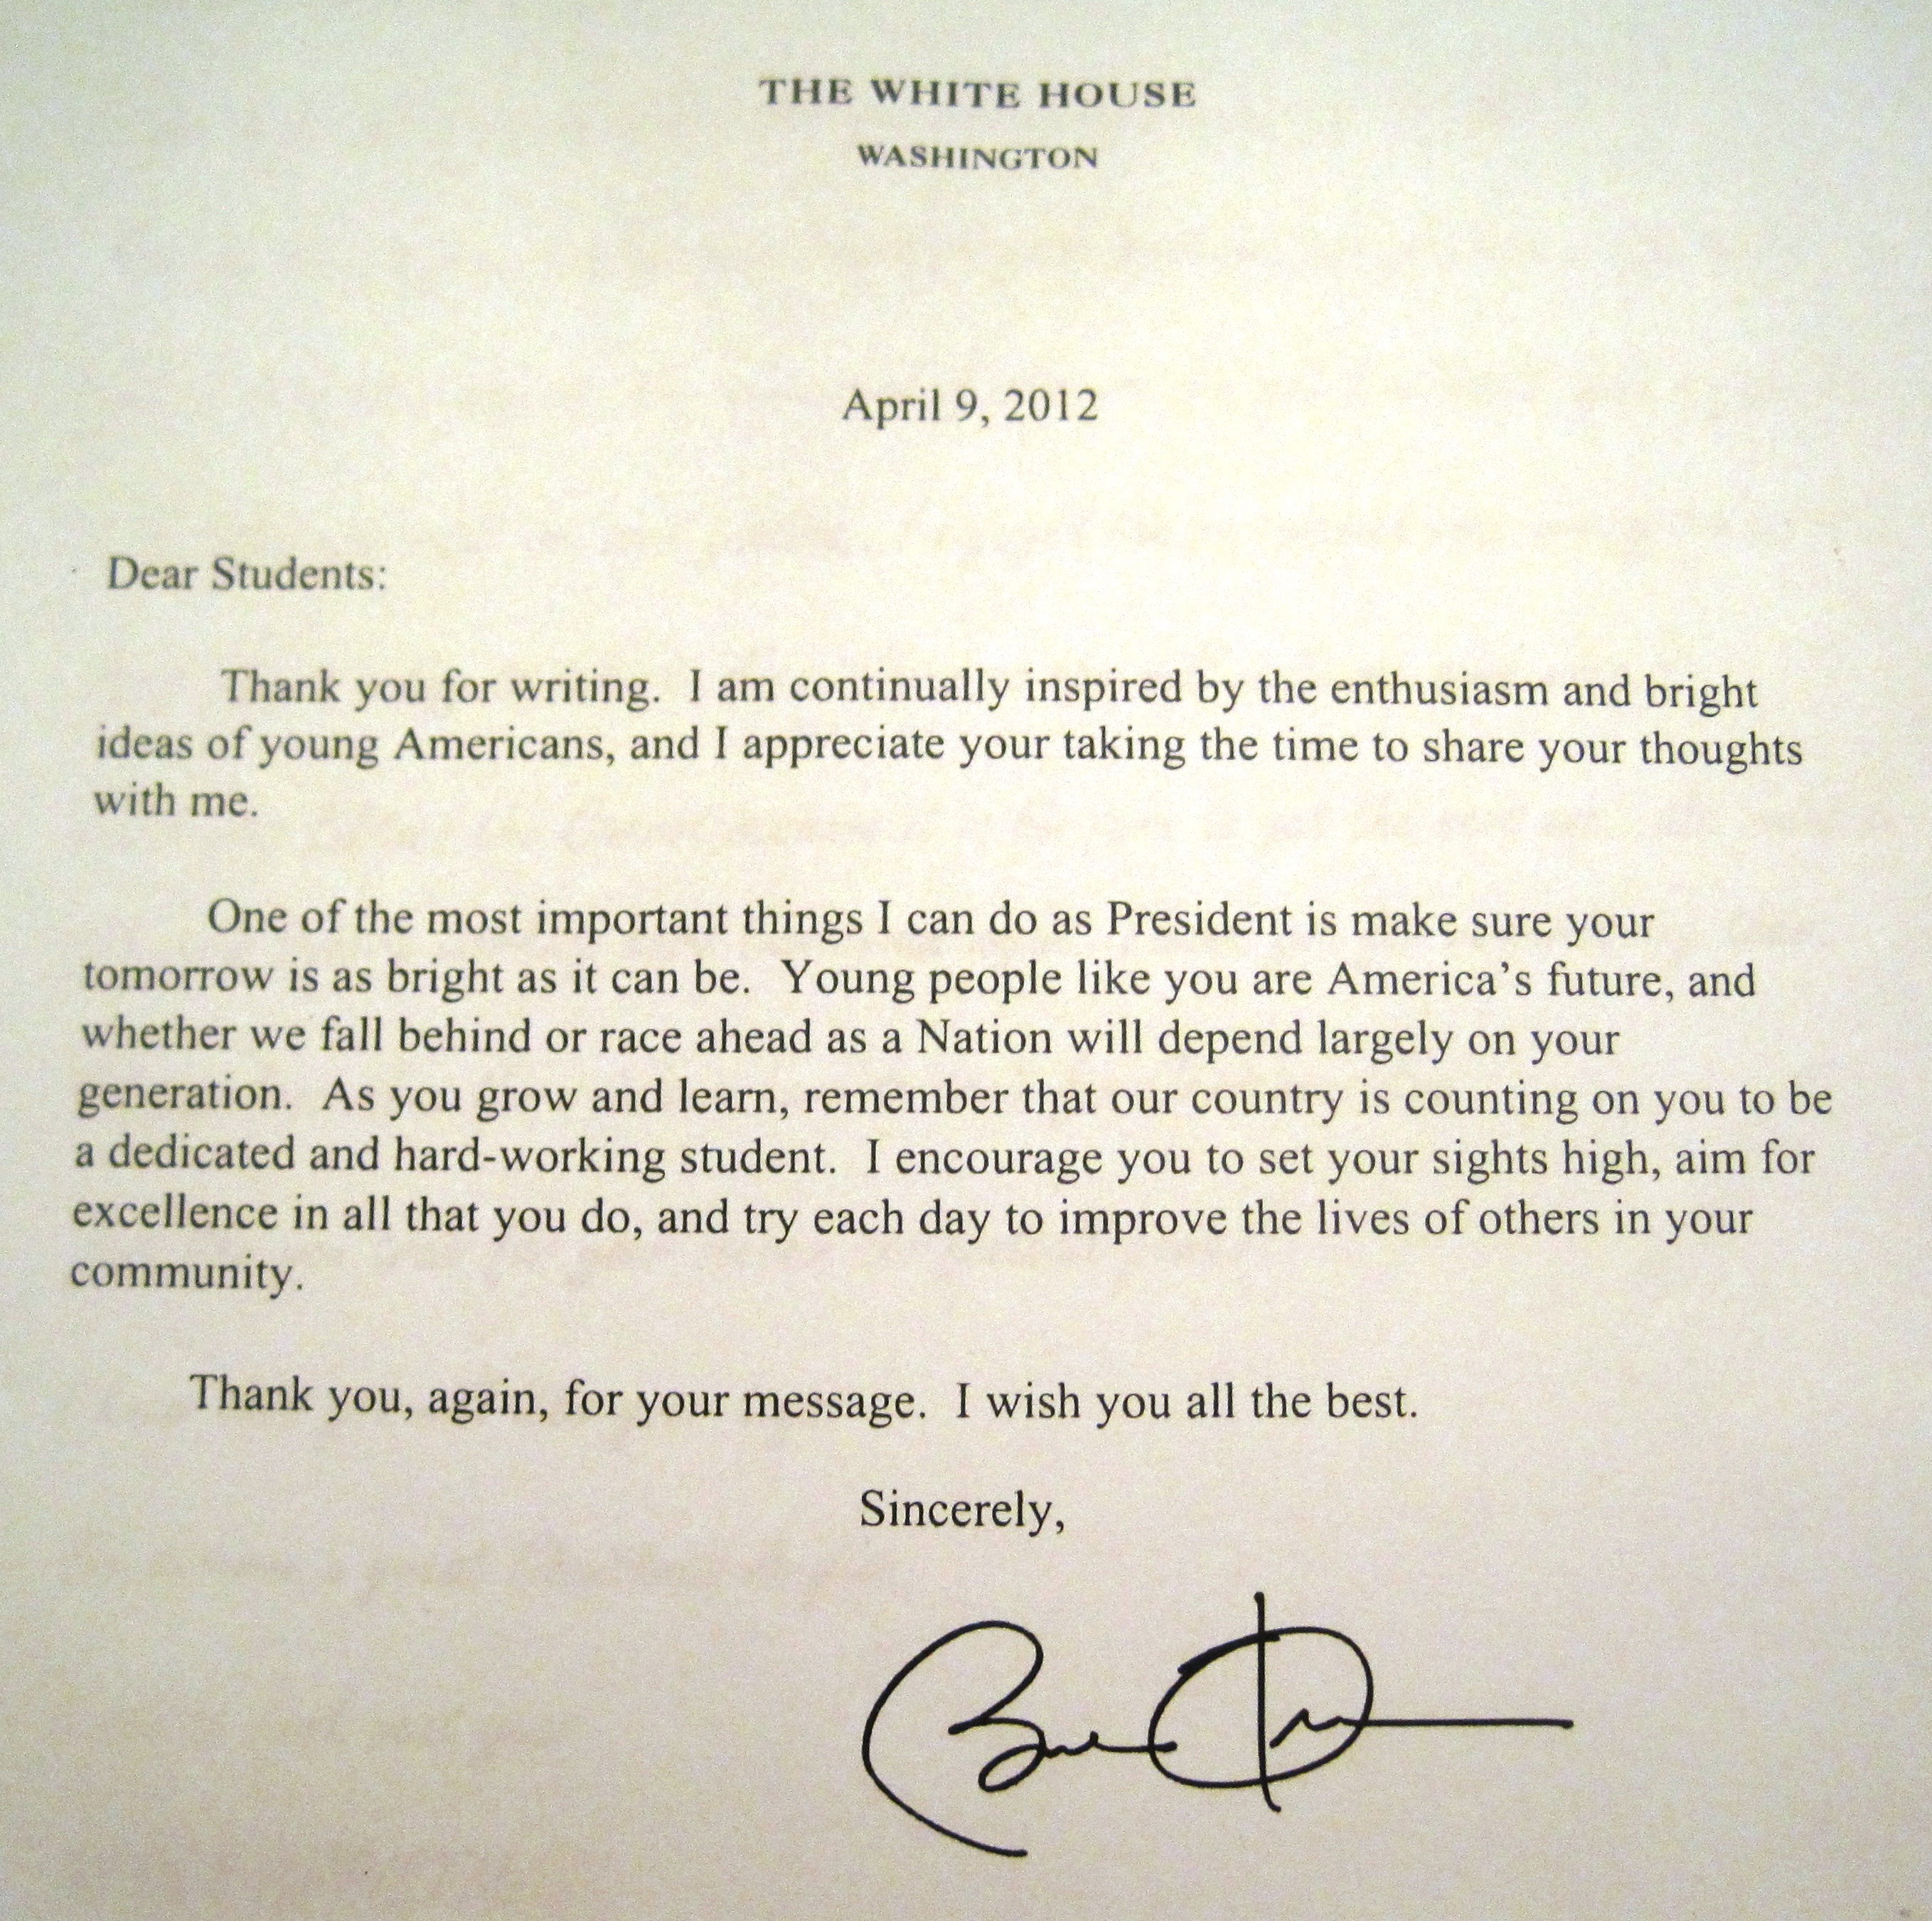 THE WHITE HOUSE
WASHINGTON
April 9, 2012
Dear Students:
Thank you for writing.  I am continually inspired by the enthusiasm and bright
ideas of young Americans, and I appreciate your taking the time to share your thoughts
with me.
One of the most important things I can do as President is make sure your
tomorrow is as bright as it can be.  Young people like you are America’s future, and
whether we fall behind or race ahead as a Nation will depend largely on your
generation.  As you grow and learn, remember that our country is counting on you to be
a dedicated and hard-working student.  I encourage you to set your sights high, aim for
excellence in all that you do, and try each day to improve the lives of others in your
community.
Thank you, again, for your message.  I wish you all the best.
Sincerely,